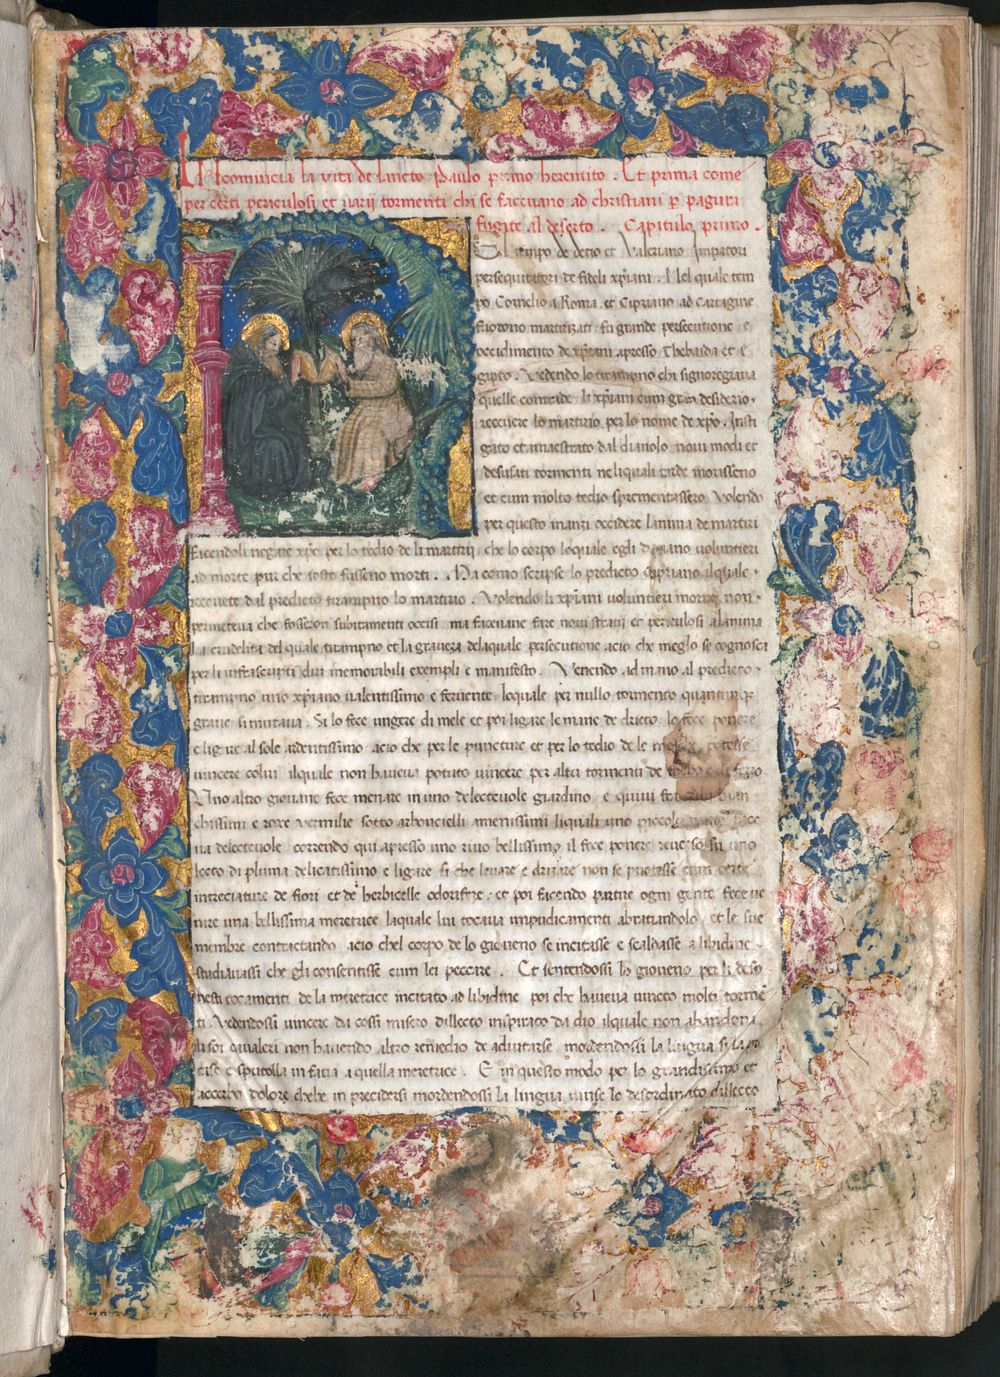 Incomincia la viti de sancto Paulo primo heremito. Et prima come
per certi periculosi et varij tormenti chi se faceuano ad christiani p paguri
fugite al deserto. Capitulo primo.
El tempo de decio et Valeriano Impatori
persequitatori de fideli xpiani. Nel quale tem
po Cornelio a Roma, et Cipriano ad cartagine
fuorono martirizati fu grande persecutione e
occidimento de xpiani apresso Thebaida et e
gipto. Vedendo lo tirampno chi signoregiaua
quelle contrade li xpiani cum gran desiderio
receuere lo martirio, per lo nome de xpo. Insti
gato et amaestrato dal diauolo noui modi et
desusati tormenti neliquali tarde morisseno
et cum molto tedio sprementassero, volendo
per questo inanzi occidere lanima de martiri
facendoli negare xpo per lo tedio de li martirij, che lo corpo loquale egli dauano voluntieri
ad morte pur che tosto fusseno morti. Ma como scripse lo predicto cipriano ilquale
receuete dal predicto tirampno lo martirio. Volendo li xpiani voluntieri morire non
permeteua che fosseron subitamenti occisi ma faceuane fare noui strazij et periculosi alanima
La crudelita del quale tirampno et la graueza delaquale persecutione acio che meglio se cognosca
per li infrascripti dui memorabili exempli e manifesto. Venendo ad mano al predicto
tirampno uno xpiano valentissimo e feruente loquale per nullo tormento quantunqe
graue si mutaua. Si lo fece ungere di mele et poi ligare le mane de drieto lo fece ponere
e ligare al sole ardentissimo acio che per le puncture et per lo tedio de le potesse
uincere colui ilquale non haueua potuto uincere per altri tormenti de
Uno altro giouane fece menare in uno delecteuole giardino e quiui
chissimi e roxe vermilie sotto arboucielli amenissimi liquali uno
ua delecteuole correndo qui apresso uno riuo bellissimo il fece ponere reuerso su uno
lecto di pluma delicatissimo e ligare si che leuare e drizare non se potesse cum certe
intreciature de fiori et de herbicelle odorifere, et poi facendo partire ogni gente fece ue
nire una bellissima meretrice laquale lui tocaua impudicamenti abratiandolo et le sue
membre contractando acio chel corpo de lo gioueno se incitasse e scaldasse a libidine
studiauassi che gli consentisse cum lei peccare. Et sentendossi lo giouene per li deso
nesti tocamenti de la meretrice incitato ad libidine poi che haueua uincto molti torme
ti. Vedendossi uincere da cossi misero dillecto inspirato da dio ilquale non abandona
li soi caualeri non hauendo altro remedio de aduitarse mordendossi la lingua si la
cise e sputolla in facia a quella meretrice. E in questo modo per lo grandissimo et
accerbo dolore chebe in precidersi mordendossi la lingua uinse lo desordinato dillecto